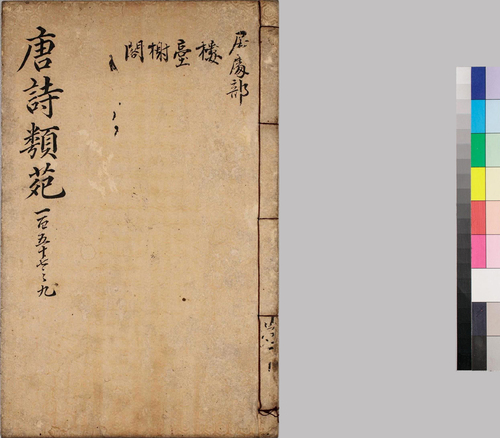 居處部
樓
臺
榭
閣
唐詩類苑
一百五十七之九